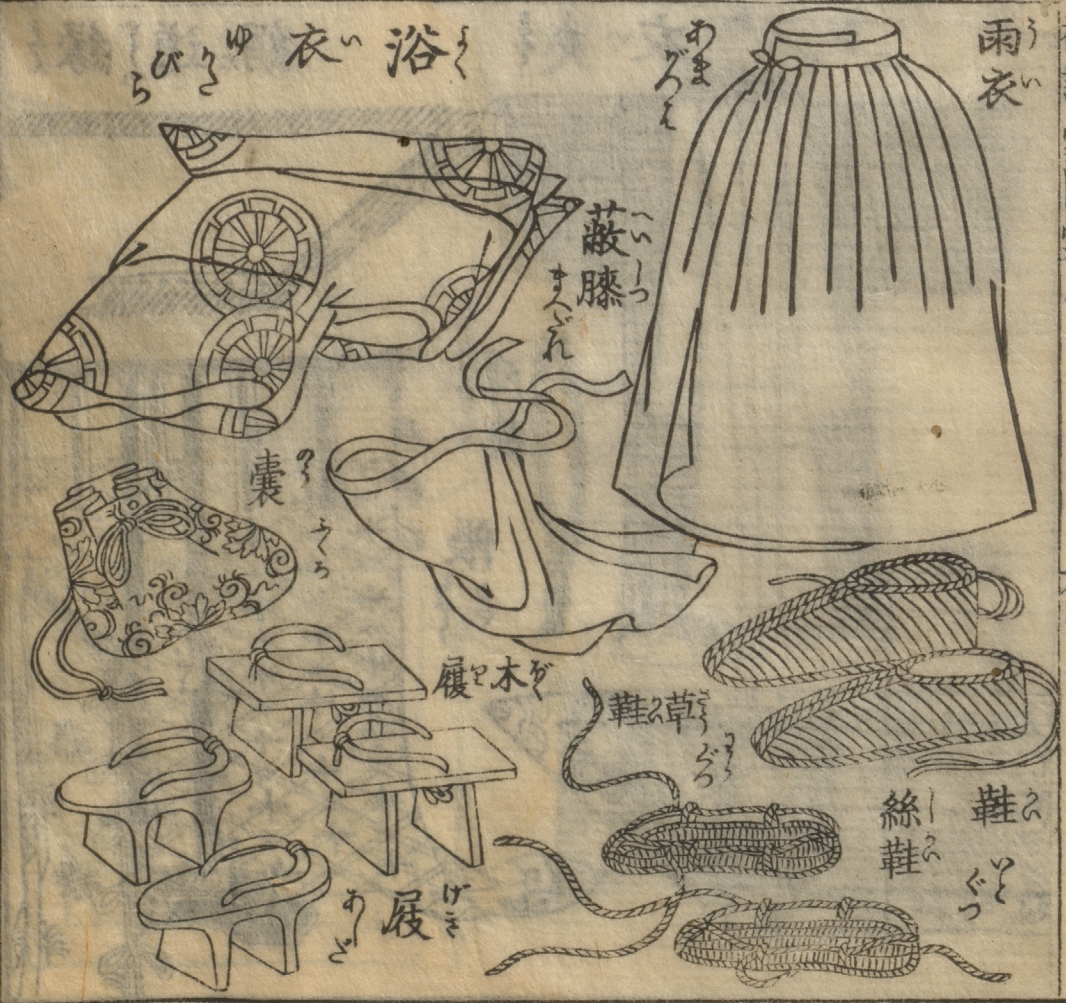 雨衣
うい
あまがつは
浴衣
よくい
ゆかたびら
蔽膝
へいしつ
まへだれ
囊
のう
ふくろ
木履
ぼくり
草鞋
さうかい
わらぐつ
鞋
かい
絲鞋
しかい
いとぐつ
屐
げき
あしだ